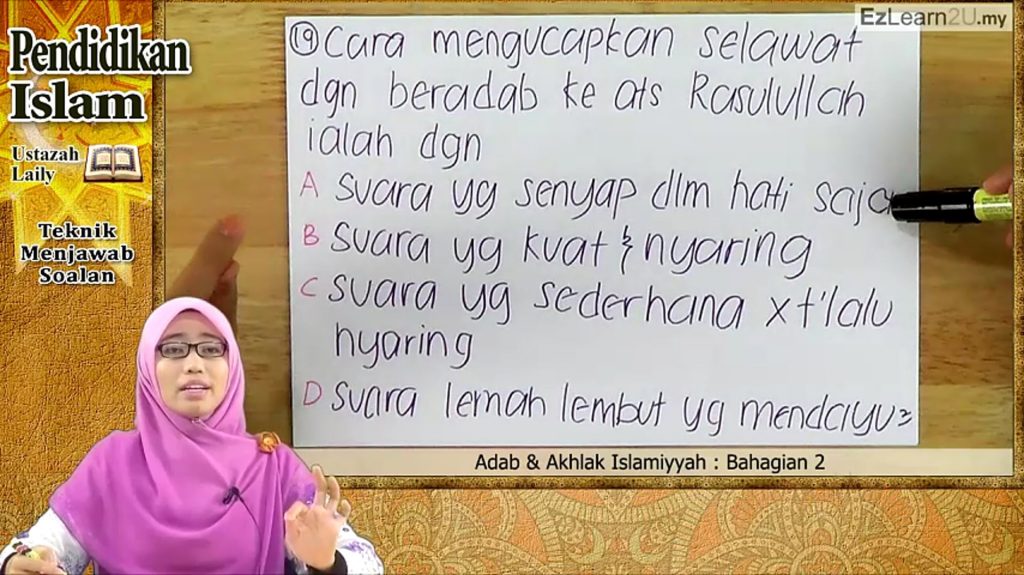 EzLearn2U.my
Pendidikan
Islam
Ustazah
Laily
Teknik
Menjawab
Soalan
19 Cara mengucapkan selawat
dgn beradab ke ats Rasulullah
ialah dgn
A suara yg senyap dlm hati saja
B suara yg kuat & nyaring
C suara yg sederhana x t'lalu
nyaring
D suara lemah lembut yg mendayu²
Adab & Akhlak Islamiyyah : Bahagian 2